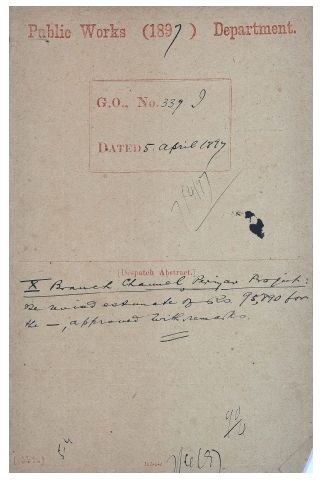 Public Works (1897) Department.
G.O., No. 339 I
DATED 5 April 1897
7/4/97
[Despatch Abstract.]
X Branch Channel, Periyar Project:
Revised estimate of Rs. 95,890 for
the —, approved with remarks.